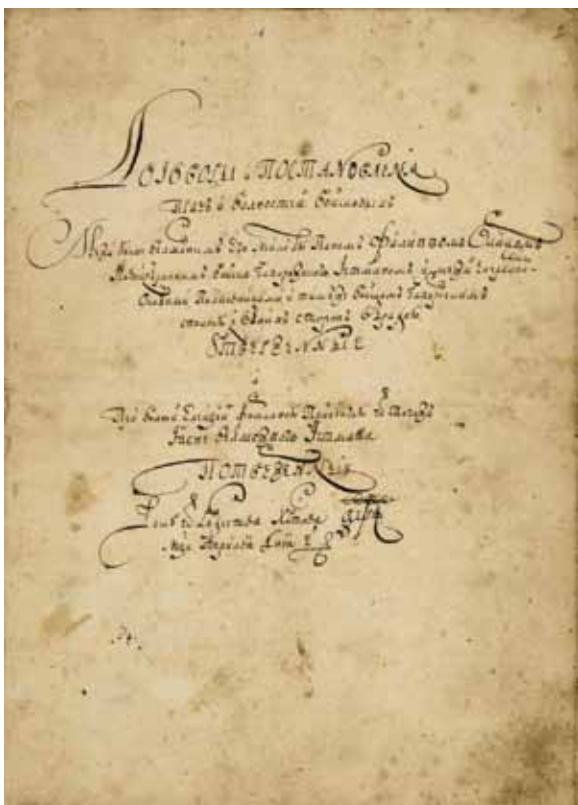 Договоры и ПОСТАНОВЛЕНѦ
Правъ и волностей Войсковыхъ
Межи Ясне велможнымъ Его милостю Паномъ Филиппомъ Орликомъ
Новоизбраннымъ Войска Запорожского Гетманомъ, и межи
Полковниками и тимжъ Войскомъ Запорожскимъ
з обоихъ сторонъ обрадою
УТВЕРЖЕННЫЕ
А
При волной Елекцїи формалною Присягою от тогожъ
Ясне велможного Гетмана
ПОТВЕРЖЕННЇЕ
Року от Рождества Христова
Мца Априля